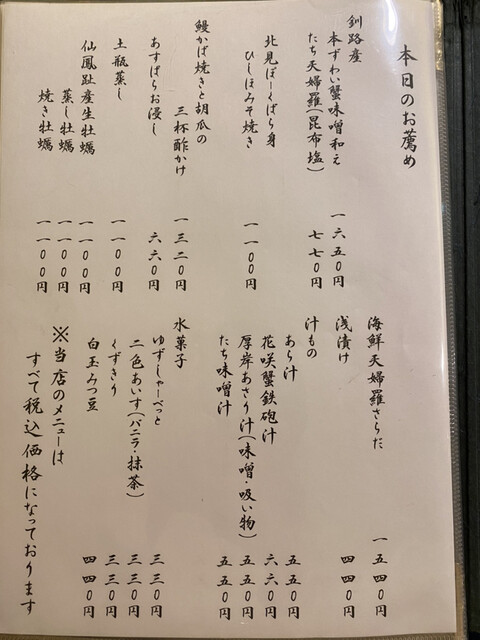 本日のお薦め
釧路産
本ずわい蟹味噌和え 一六五〇円
たち天婦羅(昆布塩) 七七〇円
北見ぽーくばら身
ひしほみそ焼き 一一〇〇円
鰻かば焼きと胡瓜の
三杯酢かけ 一三二〇円
あすぱらお浸し 六六〇円
土瓶蒸し 一一〇〇円
仙鳳趾産生牡蠣 一一〇〇円
蒸し牡蠣 一一〇〇円
焼き牡蠣 一一〇〇円
海鮮天婦羅さらだ 一五四〇円
浅漬け 四四〇円
汁もの
あら汁 五五〇円
花咲蟹鉄砲汁 六六〇円
厚岸あさり汁(味噌・吸い物) 五五〇円
たち味噌汁 五五〇円
水菓子
ゆずしゃーべっと 三三〇円
二色あいす(バニラ・抹茶) 三三〇円
くずきり 三三〇円
白玉みつ豆 四四〇円
※当店のメニューは
すべて税込価格になっております